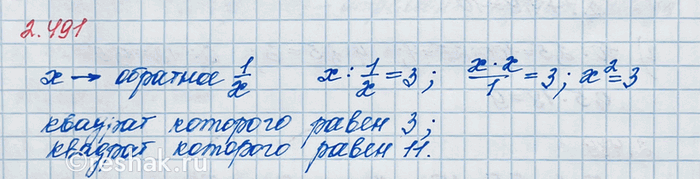 2.491
x → обратное 1/x x : 1/x = 3; x · x/1 = 3; x² = 3
квадрат которого равен 3;
квадрат которого равен 11.
reshak.ru